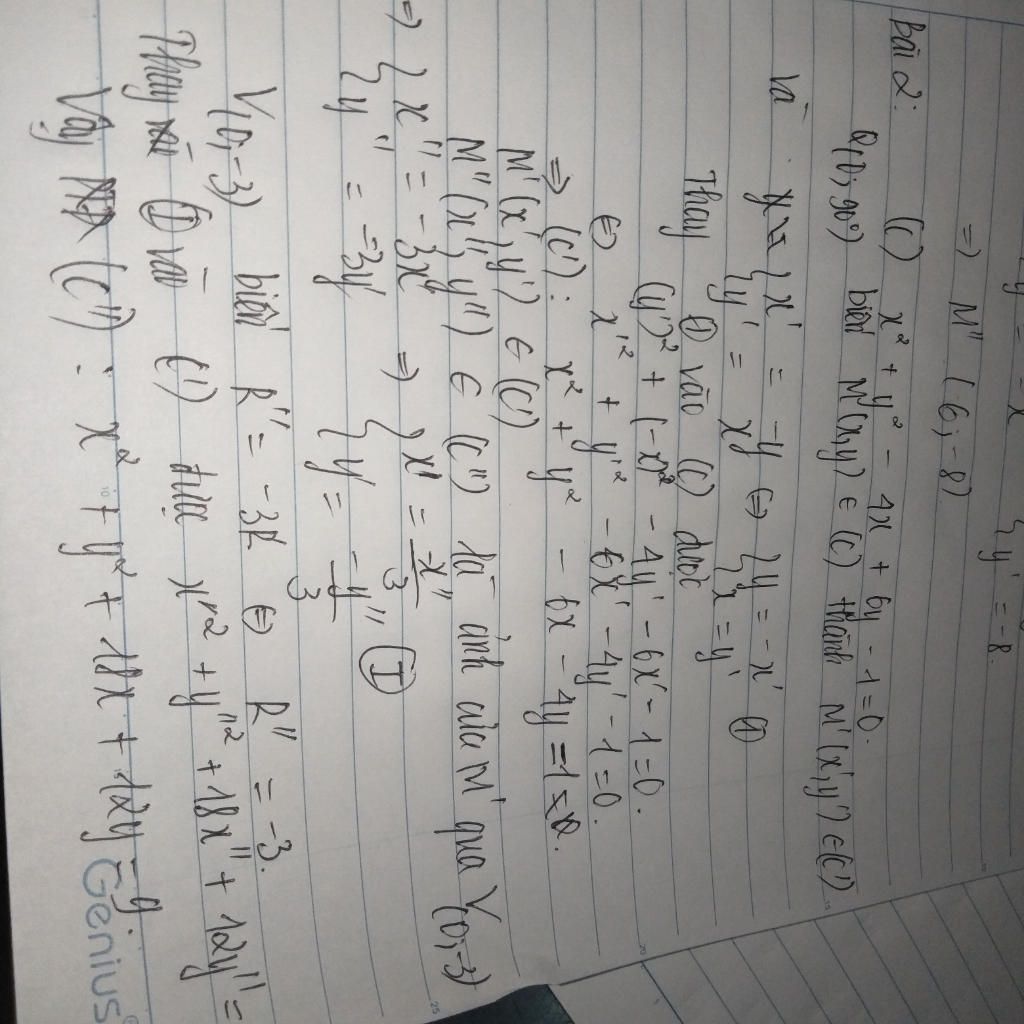 {y' = -8.
=> M'' (-6; -8)
Bài 2: (C) x² + y² - 4x + 6y - 1 = 0.
Q(O; 90°) biến M(x, y) ∈ (C) thành M'(x', y') ∈ (C')
và {x' = -y {y' = x <=> {y = -x' {x = y' ①
Thay ① vào (C) được
(y')² + (-x)² - 4y' - 6x' - 1 = 0.
<=> x'² + y'² - 6x' - 4y' - 1 = 0.
=> (C'): x² + y² - 6x - 4y = 1
M'(x', y') ∈ (C')
M''(x'', y'') ∈ (C'') là ảnh của M' qua V(O; -3)
=> {x'' = -3x' {y'' = -3y' => {x' = x''/3 {y' = -y''/3 Ⓘ
V(O, -3) biến R'' = -3R <=> R'' = -3.
Thay Ⓘ vào (C') được x''² + y''² + 18x'' + 12y'' =
Vậy (C'') : x² + y² + 18x + 12y = 9
Genius